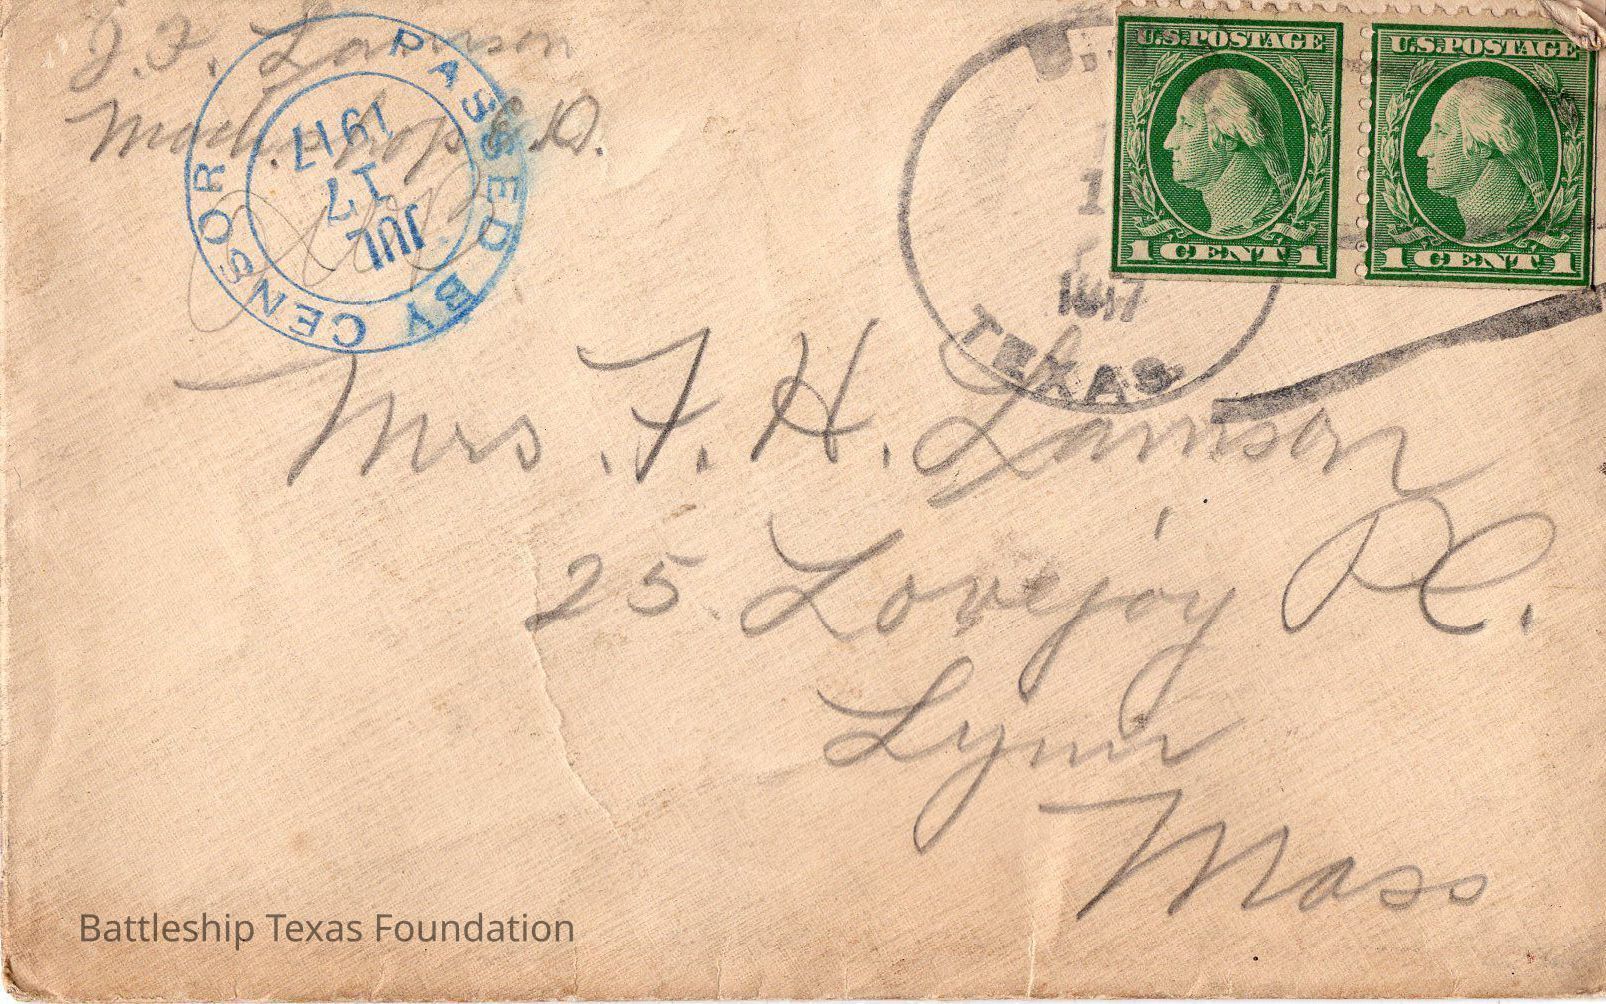 J. F. Lamson
PASSED BY CENSOR
JUL
17
1917
U.S.
1917
TEXAS
U.S. POSTAGE
1 CENT 1
U.S. POSTAGE
1 CENT 1
Mrs. F. H. Lamson
25 Lovejoy Pl.
Lynn
Mass
Battleship Texas Foundation